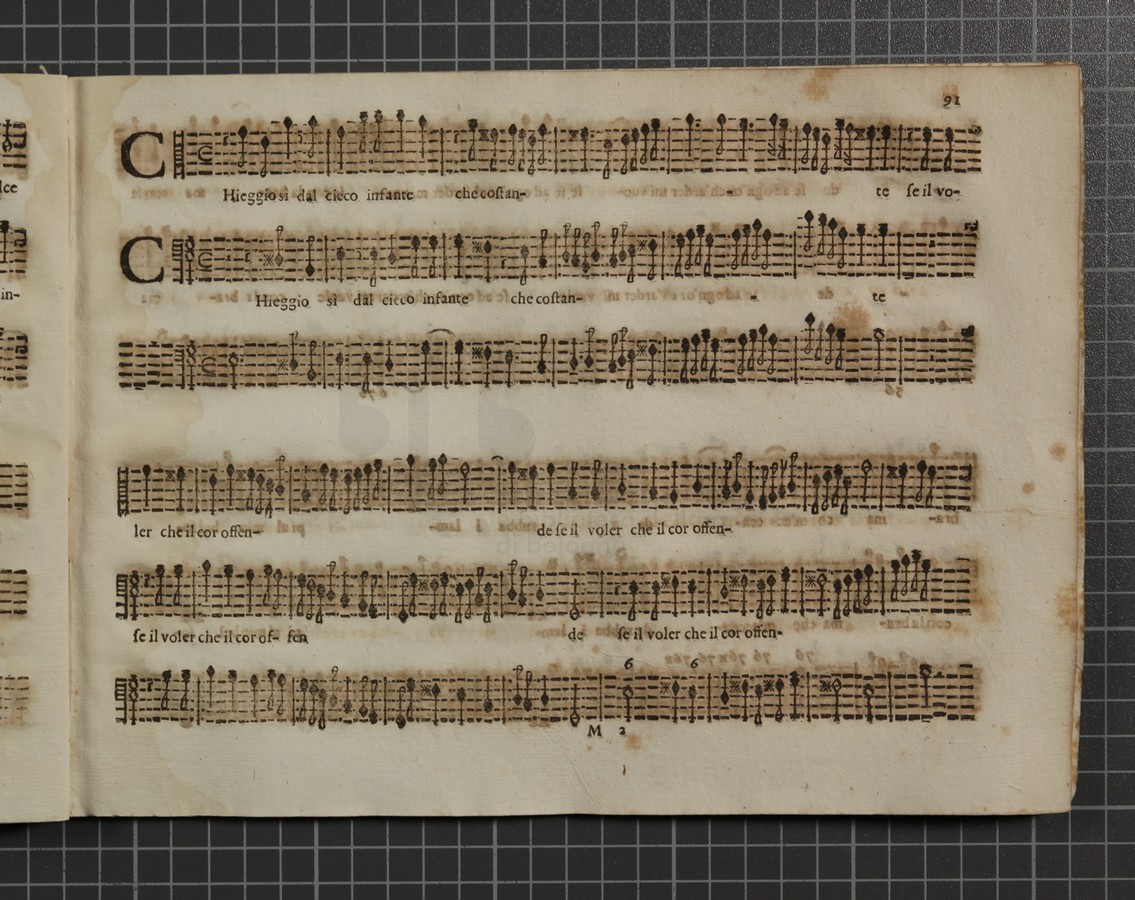 91
CHieggio sì dal cieco infante che costan- - te se il vo-
CHieggio sì dal cieco infante che costan- - te
ler che il cor offen- de se il voler che il cor offen-
se il voler che il cor of- fen de se il voler che il cor offen-
6 6
M 2